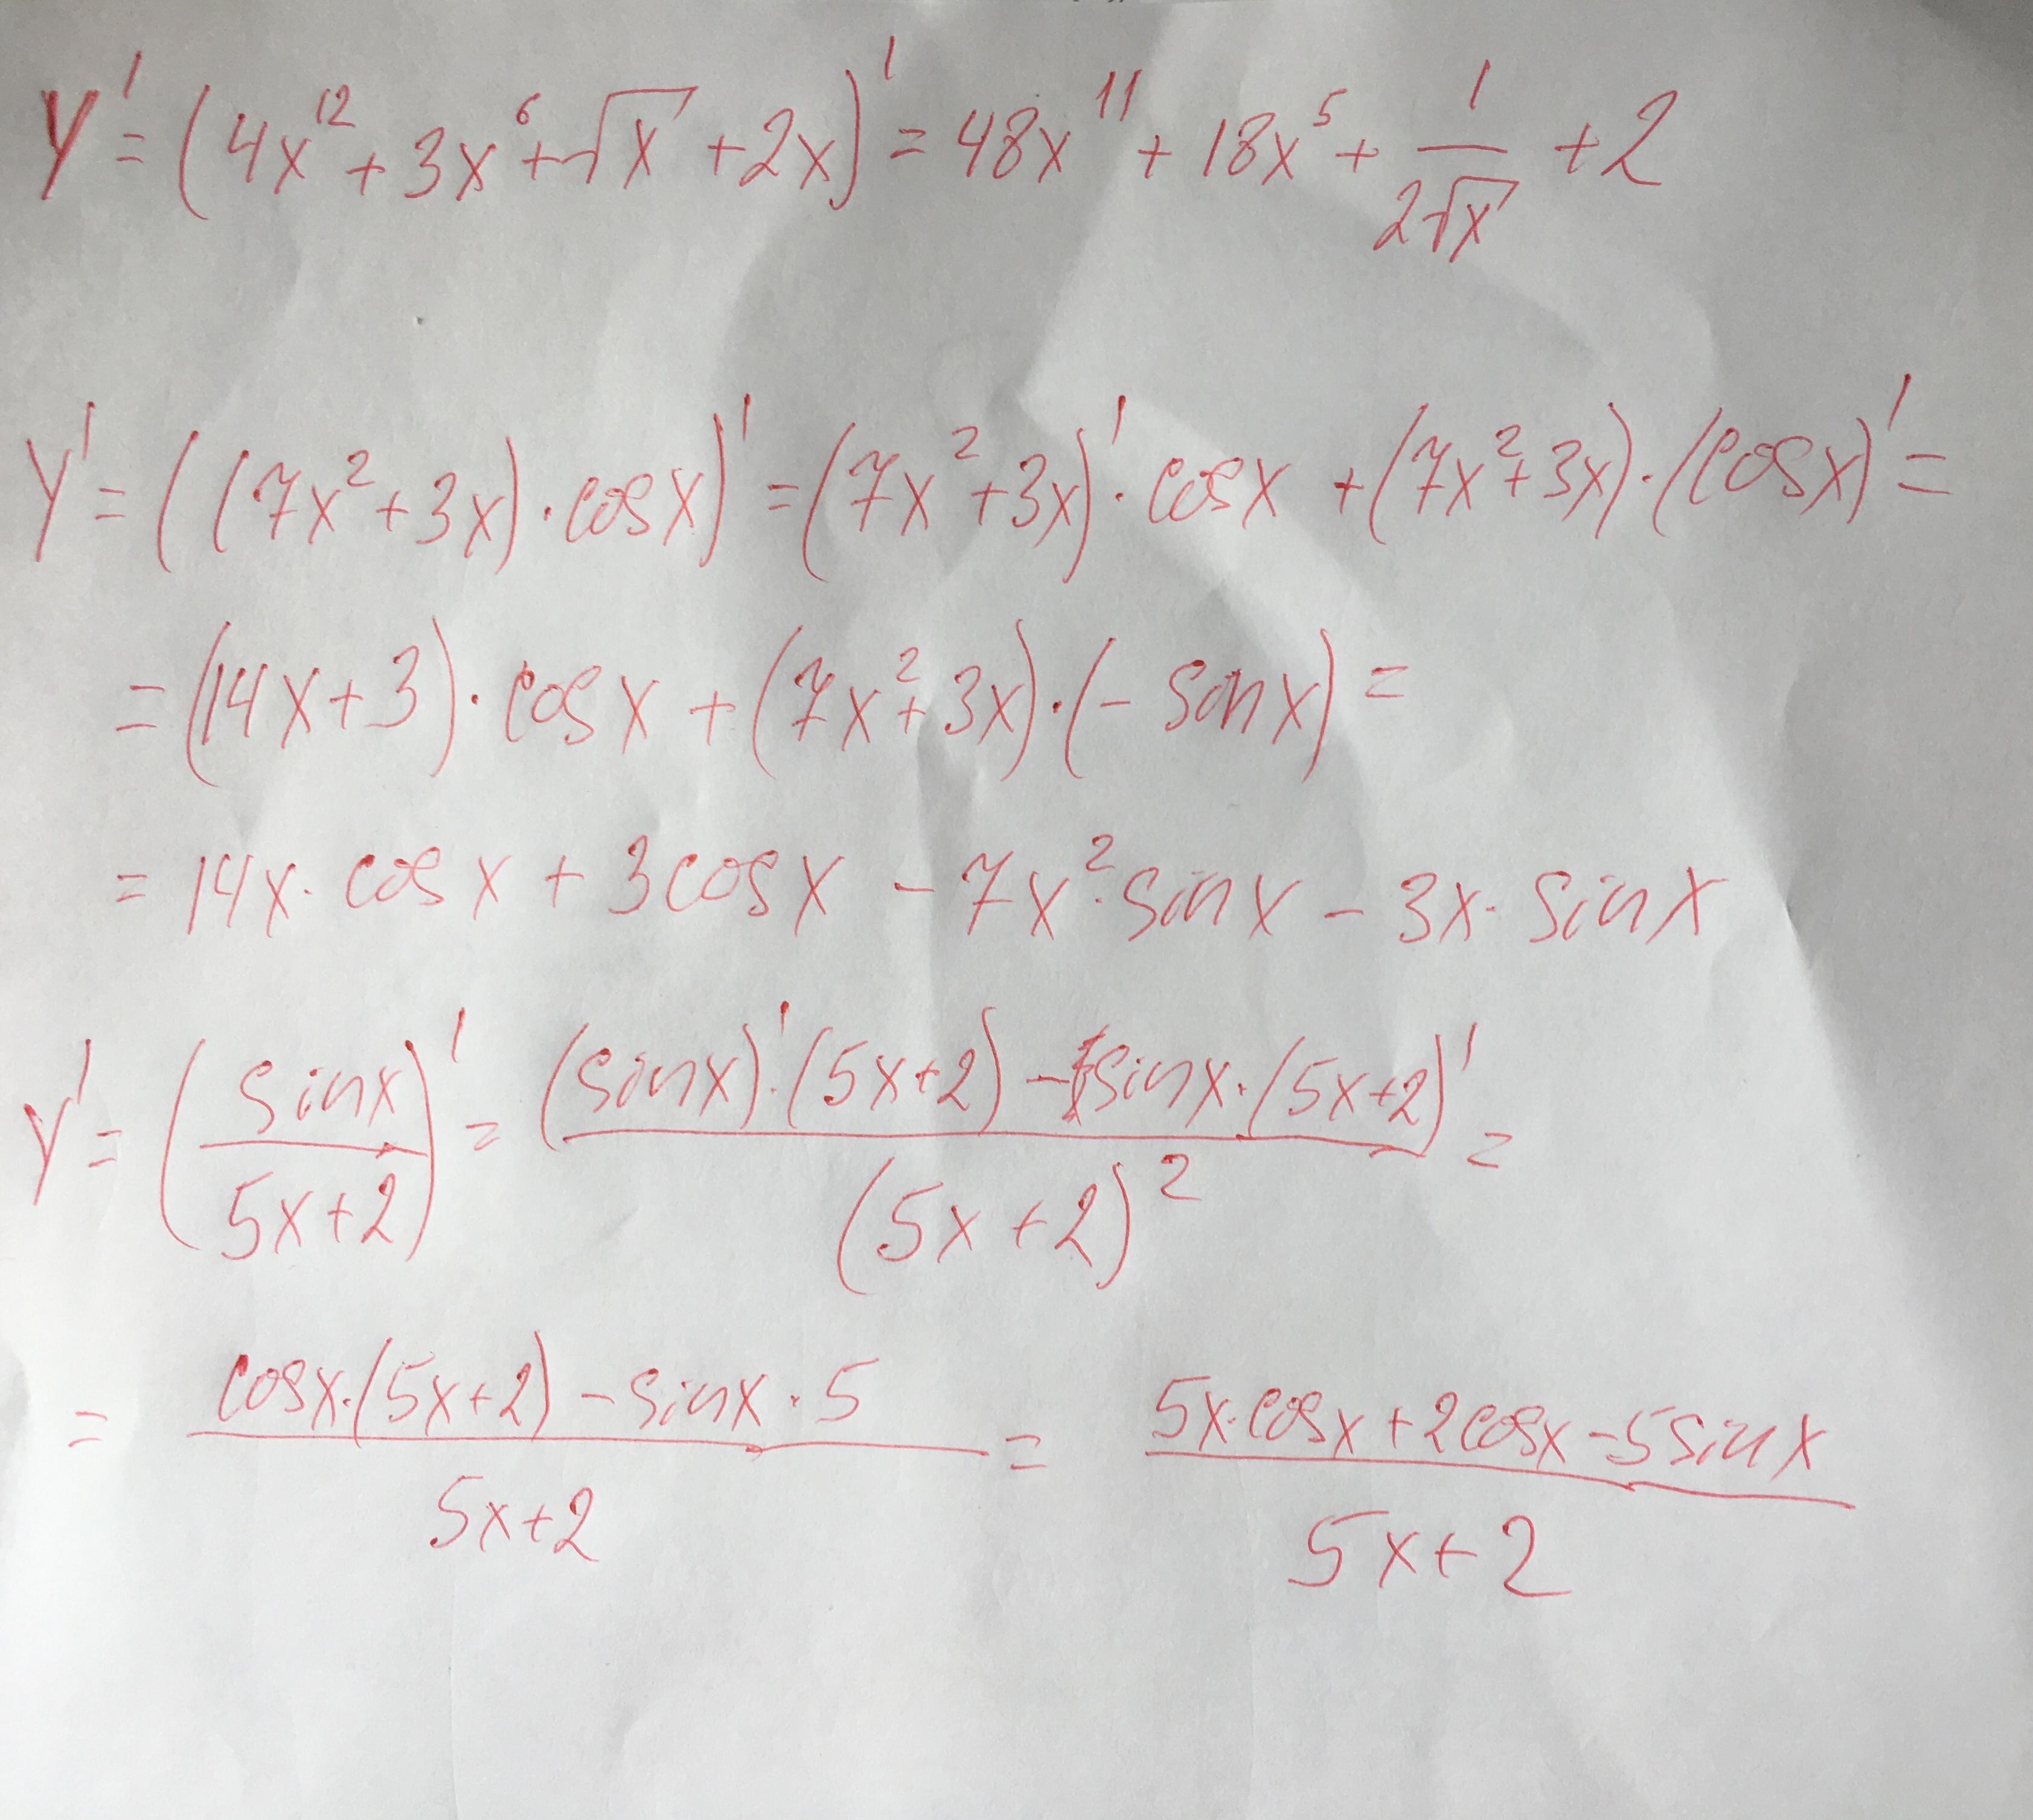 y' = (4x¹² + 3x⁶ + √x + 2x)' = 48x¹¹ + 18x⁵ + 1/(2√x) + 2
y' = ((7x² + 3x) · cosx)' = (7x² + 3x)' · cosx + (7x² + 3x) · (cosx)' =
= (14x + 3) · cosx + (7x² + 3x) · (- sinx) =
= 14x · cosx + 3cosx - 7x² · sinx - 3x · sinx
y' = (sinx/(5x+2))' = ((sinx)' · (5x+2) - sinx · (5x+2)')/(5x+2)² =
= (cosx · (5x+2) - sinx · 5)/(5x+2) = (5x · cosx + 2cosx - 5sinx)/(5x+2)